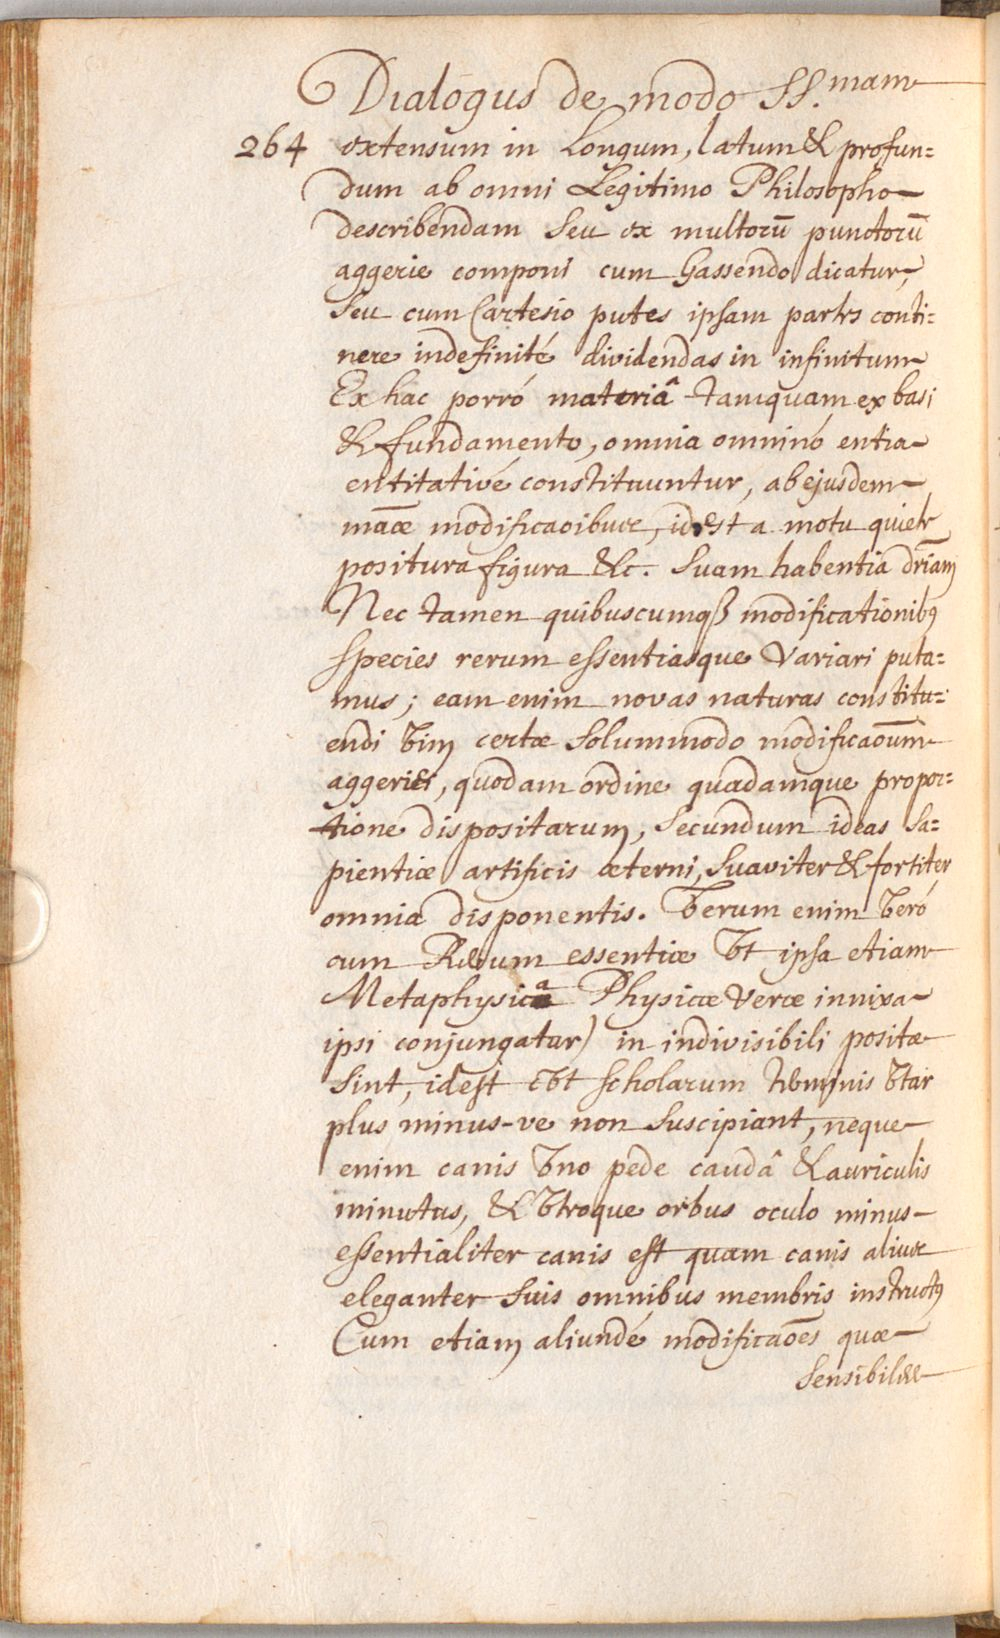 Dialogus de modo SS.mam
264 extensum in Longum, latum & profun=
dum ab omni Legitimo Philosopho
describendam Seu ex multorū punctorū
aggerie componi cum Gassendo dicatur,
Seu cum Cartesio putes ipsam partes conti=
nere indefinité dividendas in infinitum
Ex hac porró materiâ tamquam ex basi
& fundamento, omnia omninó entia
entitativé constituuntur, ab ejusdem
māæ modificaōibus, idest a motu quiete
positura figura &c. Suam habentia dr̄iam
Nec tamen quibuscumqꝫ modificationibꝰ
species rerum essentiasque Variari puta=
mus; eam enim novas naturas constitu=
endi vim certæ Solummodo modificaōum
aggeriei, quodam ordine quadamque propor=
tione dispositarum, Secundum ideas Sa=
pientiæ artificis æterni, Suaviter & fortiter
omnia disponentis. Verum enim veró
cum Rerum essentiæ Vt ipsa etiam
Metaphysica Physicæ Veræ innixa
ipsi conjungatur) in indivisibili positæ
Sint, idest (Vt scholarum terminis Vtar
plus minus-ve non Suscipiant, neque
enim canis Vno pede caudâ & auriculis
minutus, & Vtroque orbus oculo minus
essentialiter canis est quam canis alius
eleganter Suis omnibus membris instructꝰ
Cum etiam aliundé modificaōes quæ
Sensibiles